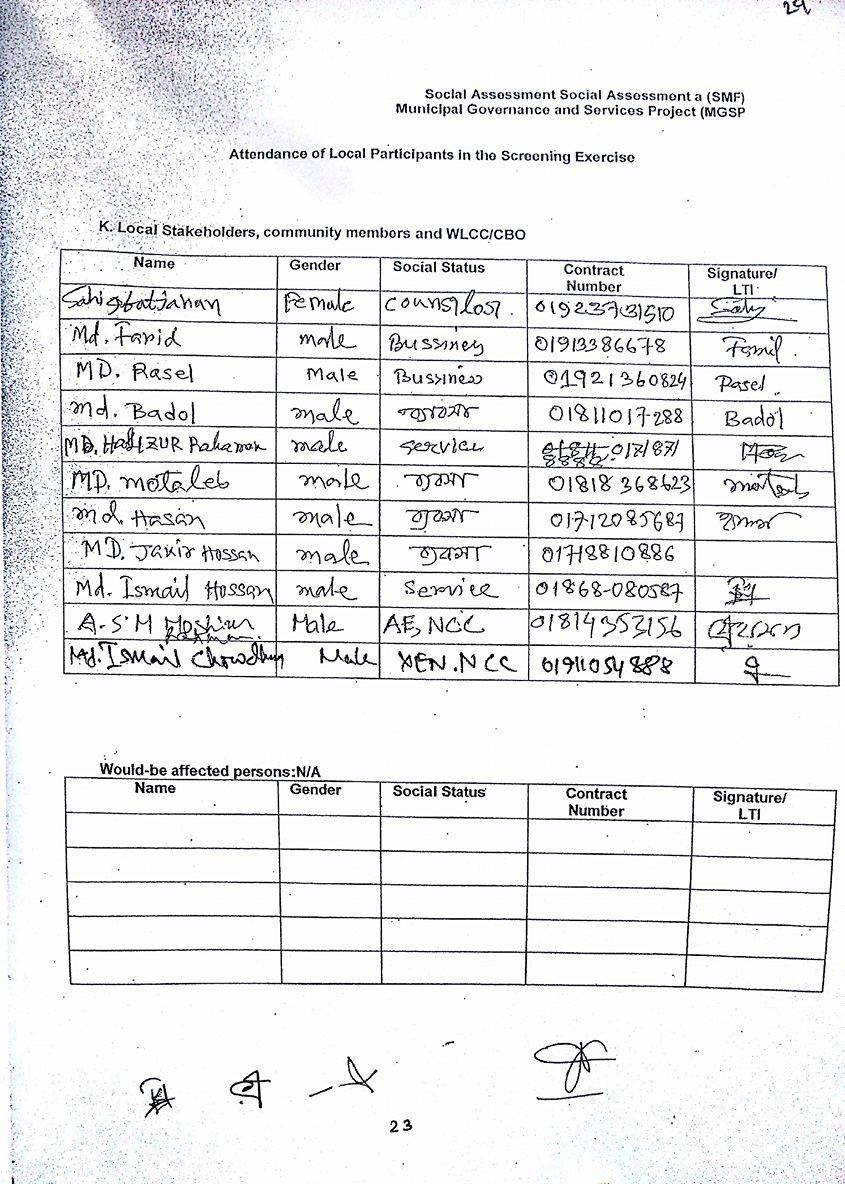 24
Social Assessment Social Assessment a (SMF)
Municipal Governance and Services Project (MGSP
Attendance of Local Participants in the Screening Exercise
K. Local Stakeholders, community members and WLCC/CBO
Name Gender Social Status Contract Number Signature/ LTI
Female 01923731510
Md. Farid male Bussiness 01913386678
MD. Rasel Male Bussiness 01921360824 Rasel.
md. Badol male ব্যবসা 01811017288 Badol
MD. HafiZUR Rahaman male service
MD. motaleb male ব্যবসা 01818 368623
md. Hasan male ব্যবসা 01712085687 হাসান
MD. Jakir Hossan male ব্যবসা 01718810886
Md. Ismail Hossan male Service 01868-080587
A.S.M Moshiur Rahman Male AE, NCC 01814353156
Md. Ismail Chowdhury Male XEN. NCC 01911054888
Would-be affected persons:N/A
Name Gender Social Status Contract Number Signature/ LTI
23